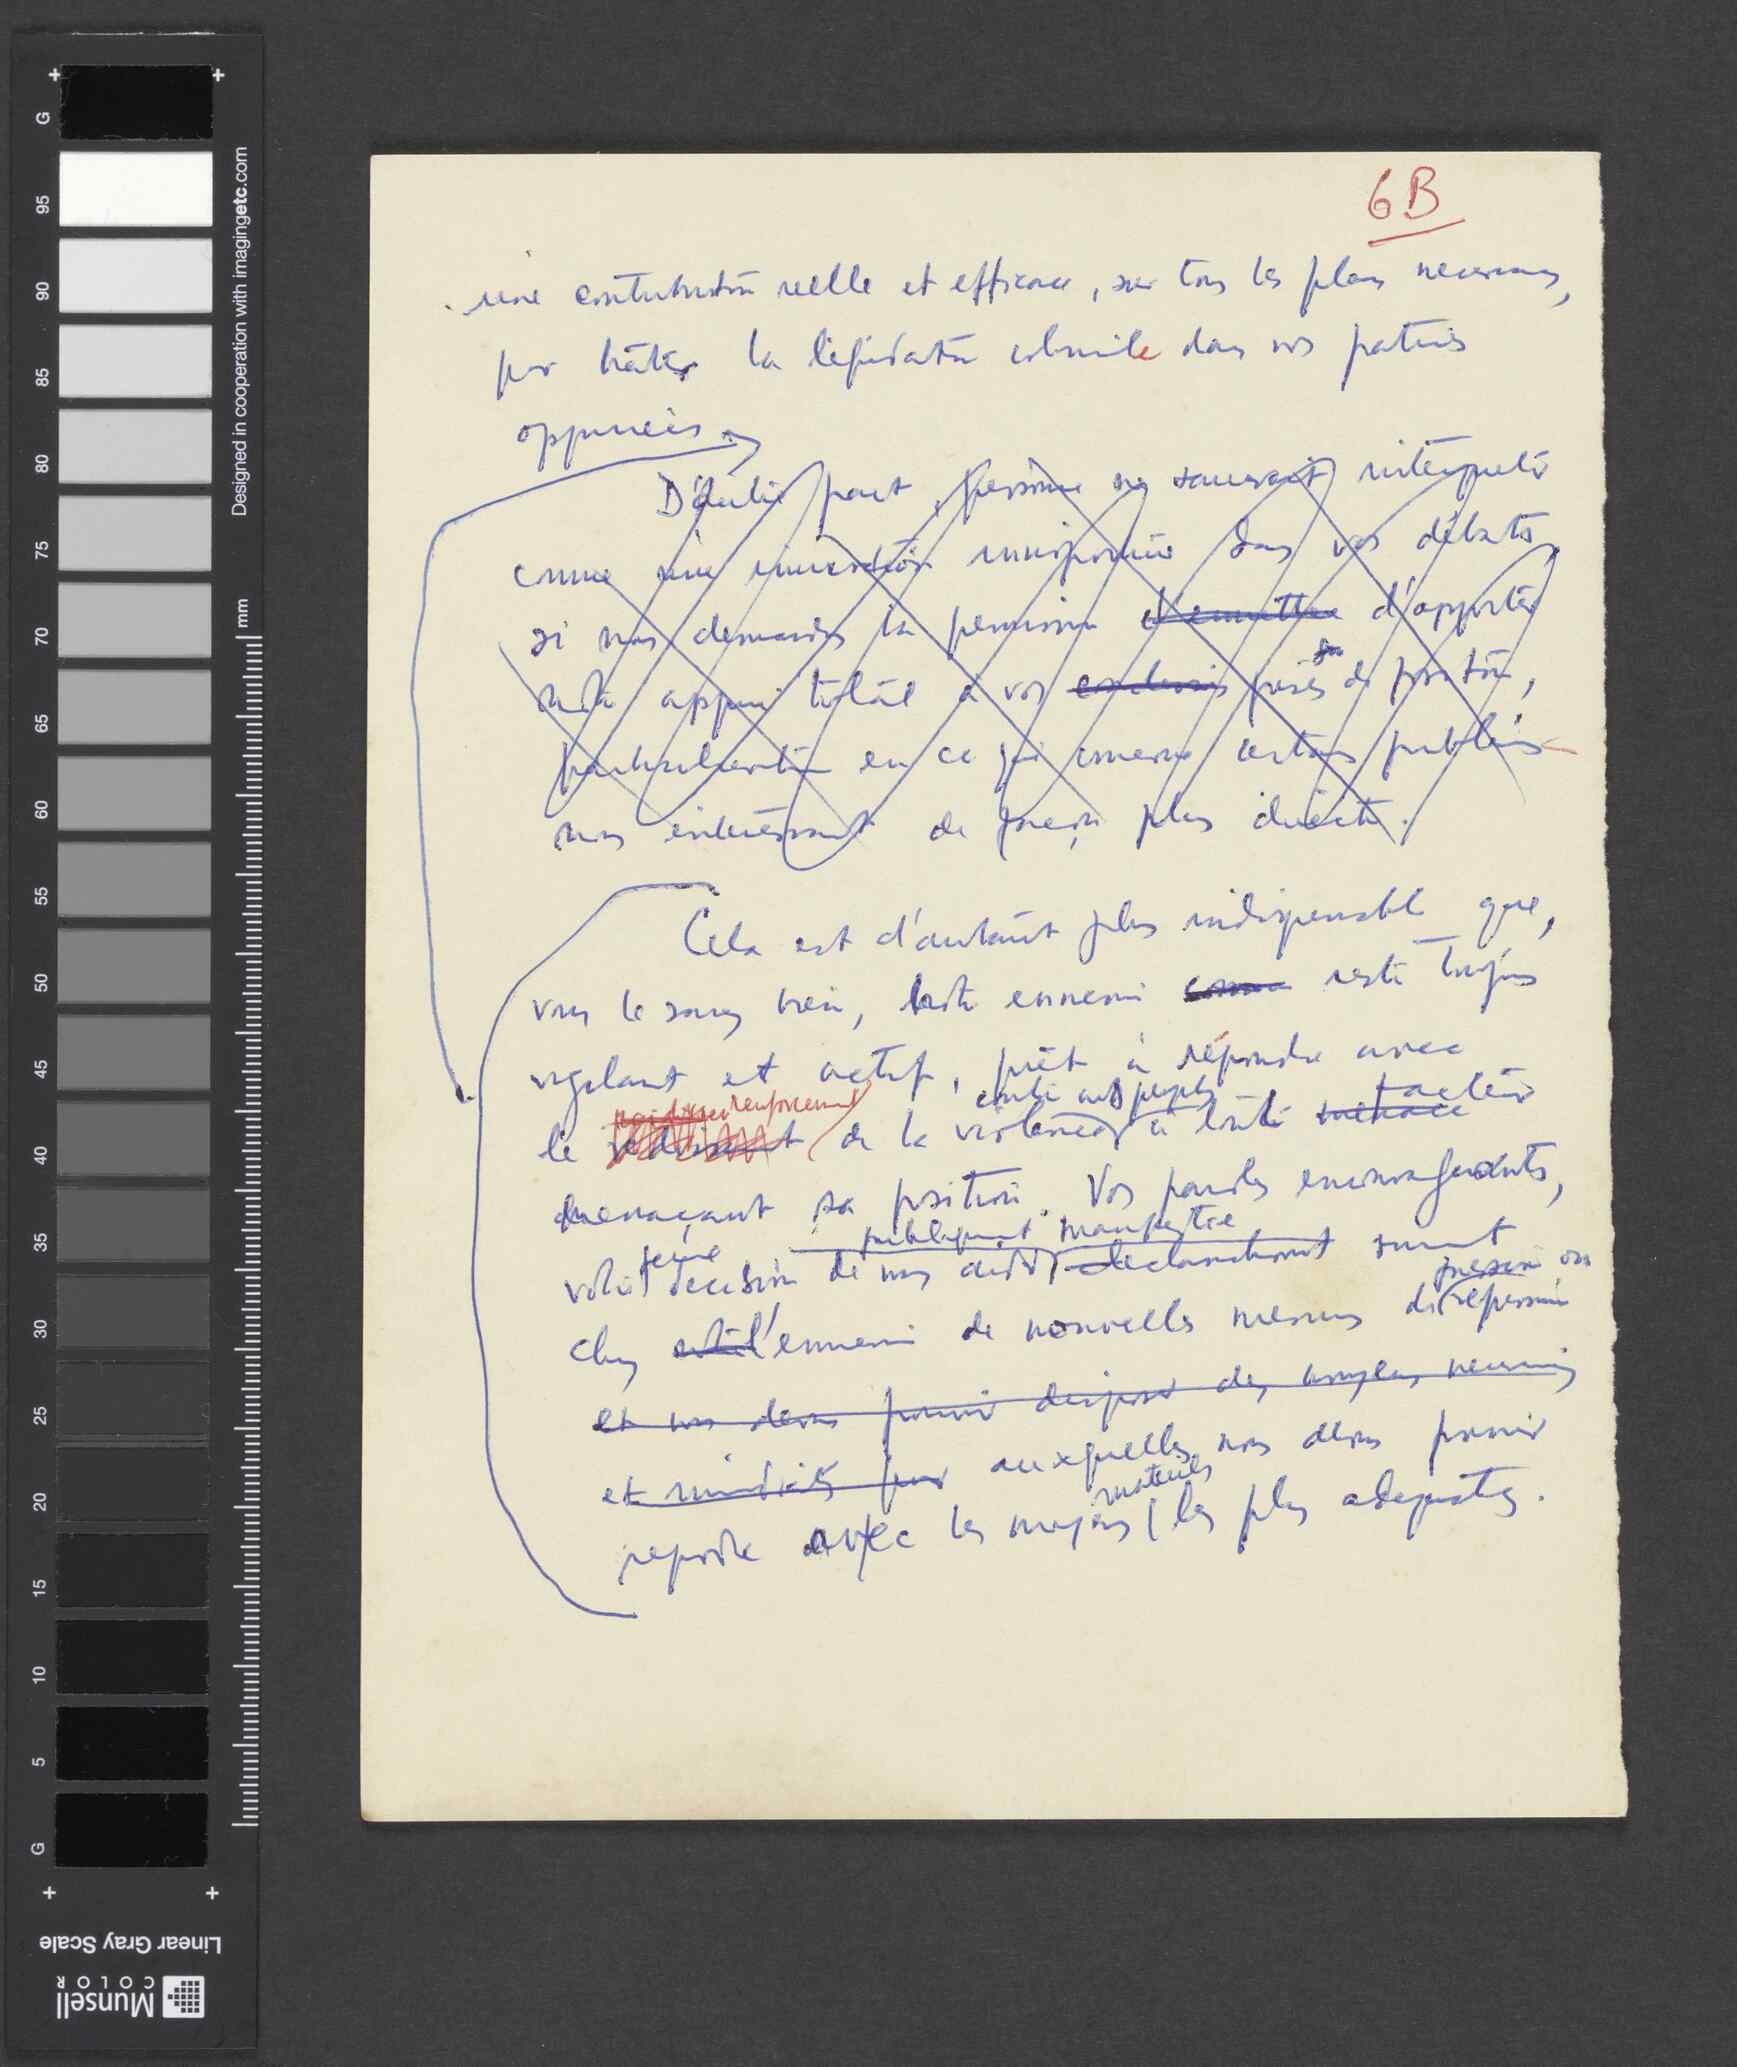 6B
une contribution réelle et efficace, sur tous les plans nécessaires,
pour hâter la liquidation coloniale dans nos patries
opprimées.
D'autre part, personne ne saurait interpréter
comme une immixtion dans vos débats
si nous demandons la permission d'émettre d'apporter
notre appui total à vos prises de position,
particulièrement en ce qui concerne certains problèmes
nous intéressant de façon plus directe.
Cela est d'autant plus indispensable que,
vous le savez bien, notre ennemi reste toujours
vigilant et actif, prêt à répondre avec
contre nos peuples
renforcement action
le de la violence à toute menace
menaçant sa position. Vos paroles encourageantes,
publiquement manifestée
ferme
votre décision de nous aider, déclancheront
pression ou
chez l'ennemi de nouvelles mesures de répression
et nous devons pouvoir disposer des moyens
et pour auxquelles nous devons pouvoir
matériels
répondre avec les moyens les plus adéquats.
Designed in cooperation with imagingetc.com
mm
G
95
90
85
80
75
70
65
60
55
50
45
40
35
30
25
20
15
10
5
G
Linear Gray Scale
Munsell
COLOR